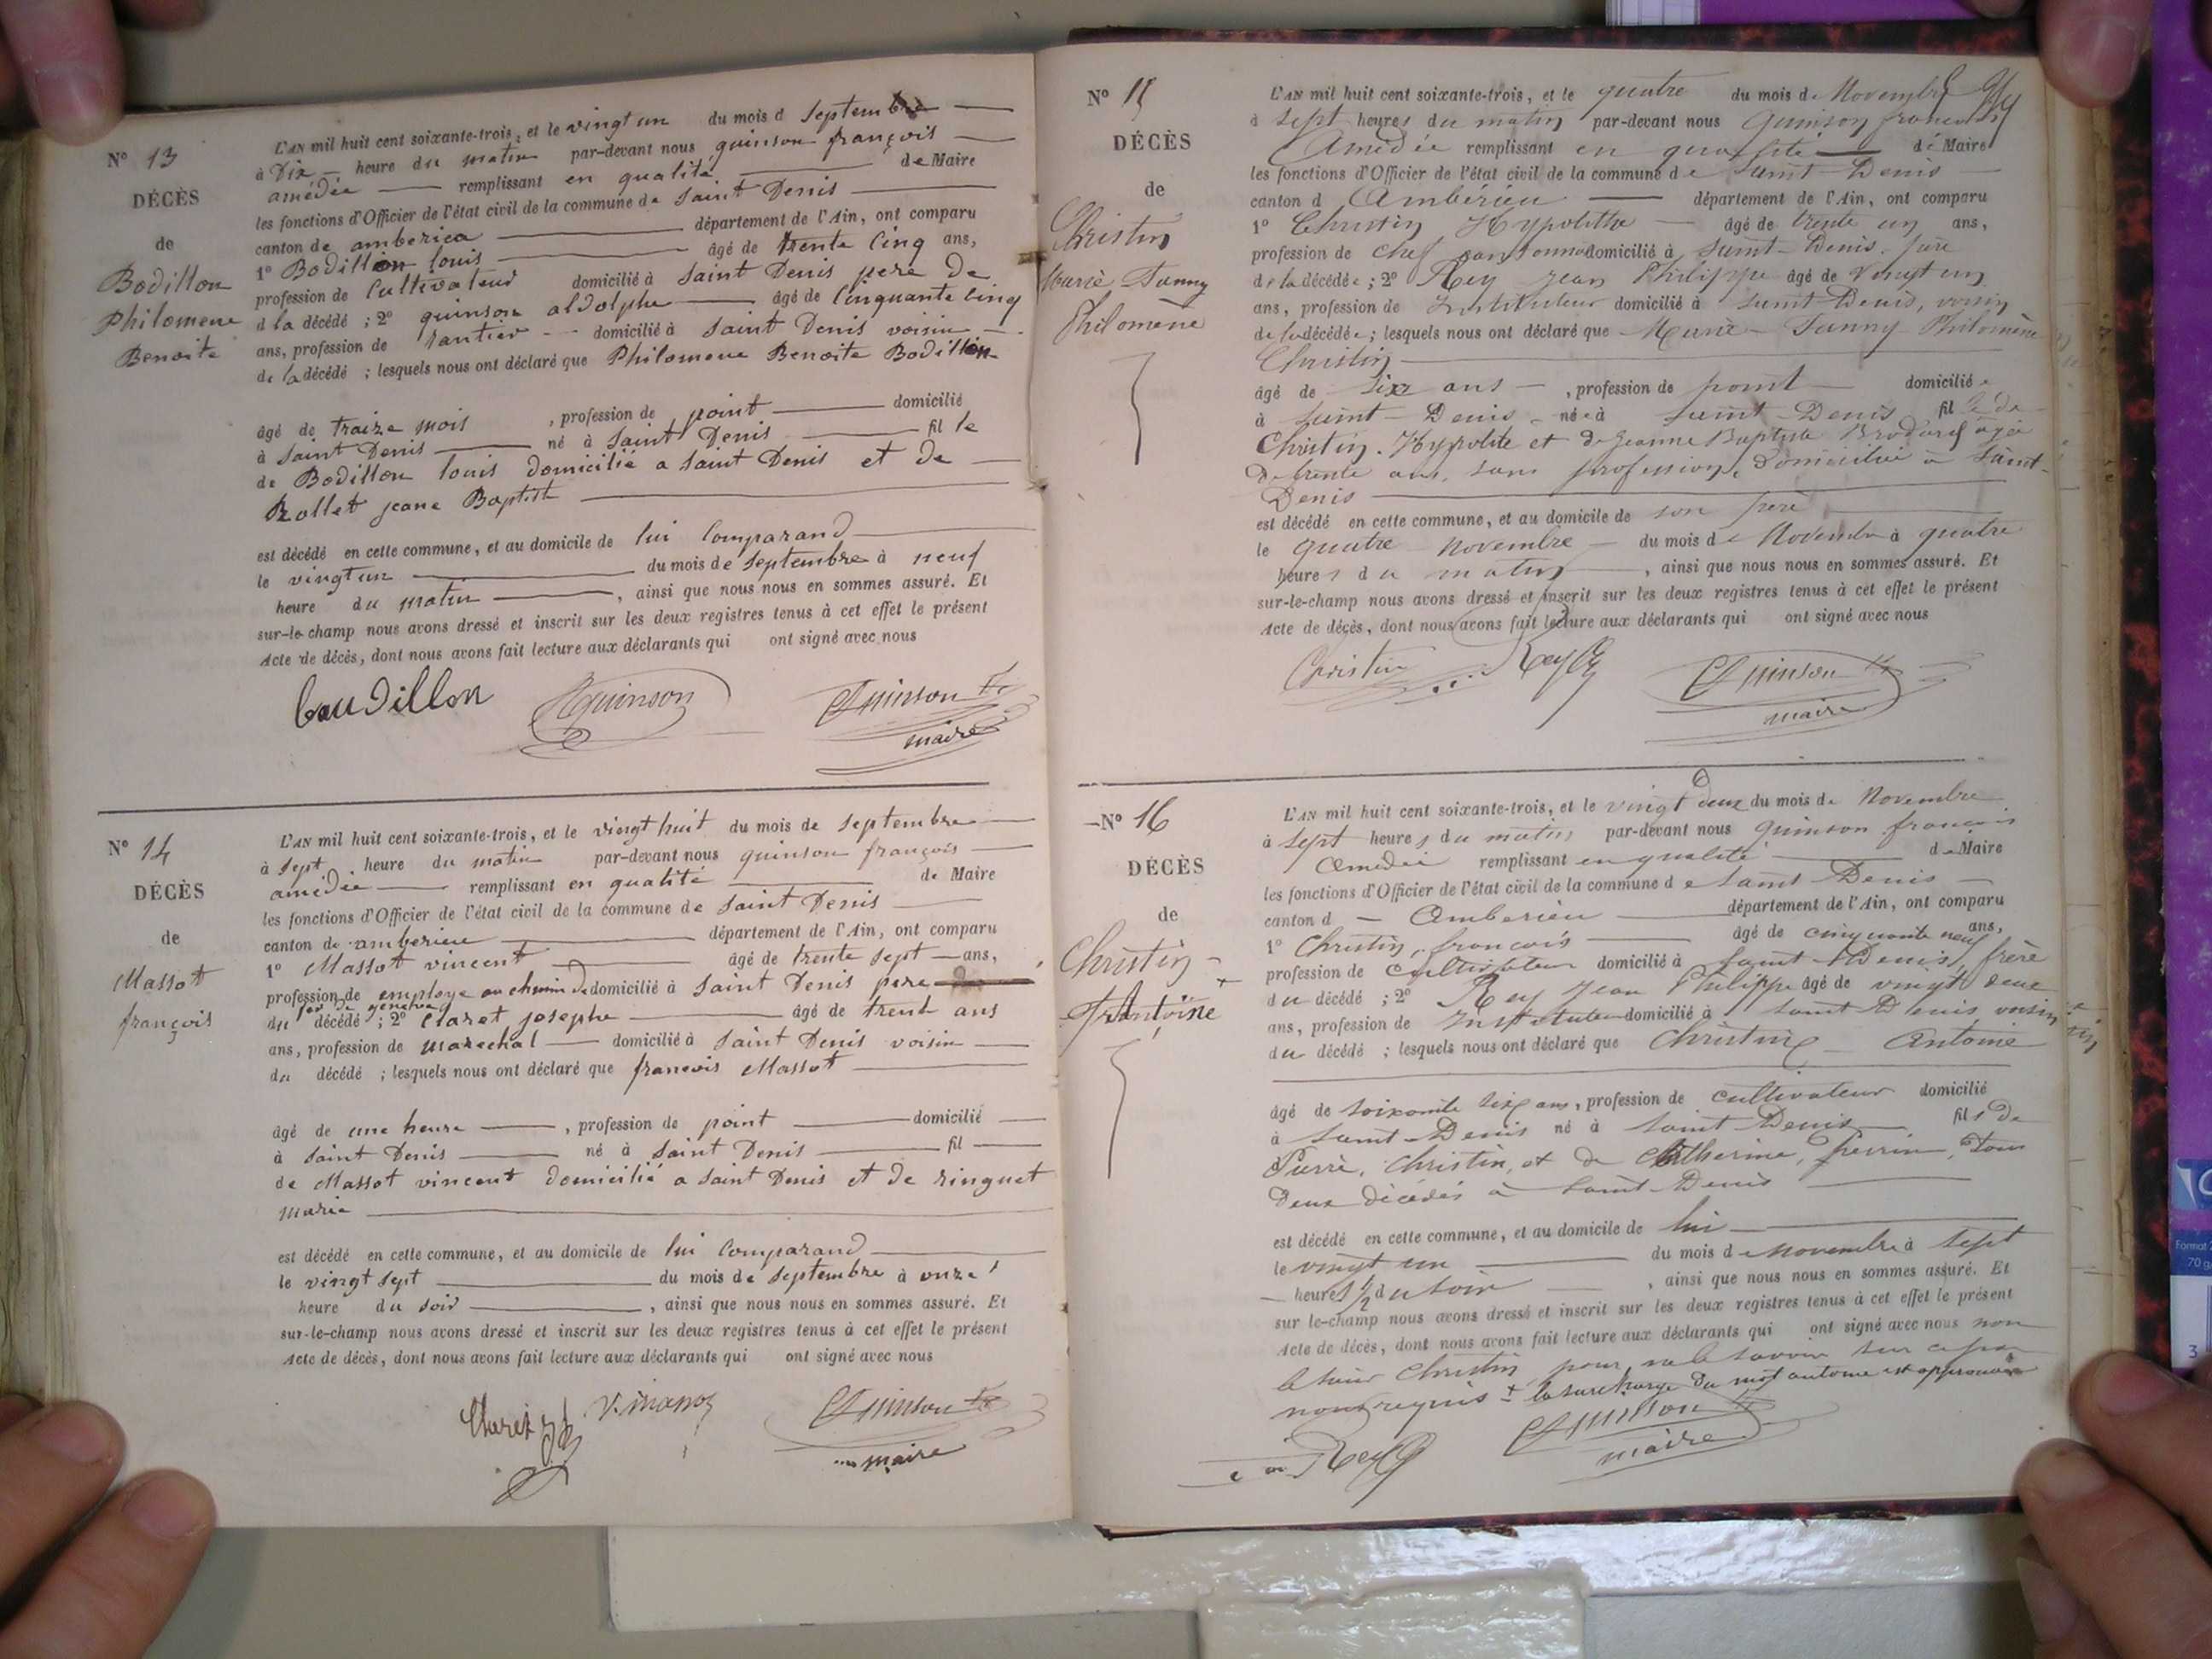 Nº 13
DÉCÈS
de
Bodillon
Philomene
Benoite
L'AN mil huit cent soixante-trois, et le vingt un du mois d septembre
à Dix heure du matin par-devant nous quinson françois
amédée remplissant en qualité de Maire
les fonctions d'Officier de l'état civil de la commune de saint Denis
canton de amberica département de l'Ain, ont comparu
1º Bodillon louis âgé de trente cinq ans,
profession de Cultivateur domicilié à saint Denis pere de
d la décédé ; 2º quinson aldolphe âgé de cinquante cinq
ans, profession de rantier domicilié à saint Denis voisin
de la décédé ; lesquels nous ont déclaré que Philomene Benoite Bodillon
âgé de traize mois , profession de point domicilié
à saint Denis né à saint Denis fil le
de Bodillon louis domicilié a saint Denis et de
Rollet jeane Baptist
est décédé en cette commune, et au domicile de lui Comparand
le vingt un du mois de septembre à neuf
heure du matin , ainsi que nous nous en sommes assuré. Et
sur-le-champ nous avons dressé et inscrit sur les deux registres tenus à cet effet le présent
Acte de décès, dont nous avons fait lecture aux déclarants qui ont signé avec nous
baudillon Quinson Quinson
maire
Nº 14
DÉCÈS
de
Massot
françois
L'AN mil huit cent soixante-trois, et le vingt huit du mois de septembre
à sept heure du matin par-devant nous quinson françois
amédée remplissant en qualité de Maire
les fonctions d'Officier de l'état civil de la commune de saint Denis
canton de amberieu département de l'Ain, ont comparu
1º Massot vincent âgé de trente sept ans,
profession de employe au chemin de domicilié à saint Denis pere
fer de geneve
du décédé ; 2º Claret josephe âgé de trent ans
ans, profession de marechal domicilié à saint Denis voisin
du décédé ; lesquels nous ont déclaré que francois Massot
âgé de une heure , profession de point domicilié
à saint Denis né à saint Denis fil
de Massot vincent domicilié a saint Denis et de ringuet
marie
est décédé en cette commune, et au domicile de lui Comparand
le vingt sept du mois de septembre à onze
heure du soir , ainsi que nous nous en sommes assuré. Et
sur-le-champ nous avons dressé et inscrit sur les deux registres tenus à cet effet le présent
Acte de décès, dont nous avons fait lecture aux déclarants qui ont signé avec nous
Claret Quinson
maire
Nº 15
DÉCÈS
de
Christin
Marie Fanny
Philomène
L'AN mil huit cent soixante-trois, et le quatre du mois de Novembre
à sept heures du matin par-devant nous Quinson françois
Amédée remplissant en qualité de Maire
les fonctions d'Officier de l'état civil de la commune de Saint Denis
canton d Ambérieu département de l'Ain, ont comparu
1º Christin Hypolithe âgé de trente un ans,
profession de chef domicilié à Saint-Denis père
de la décédée ; 2º Rey Jean Philippe âgé de vingt un
ans, profession de Instituteur domicilié à Saint Denis, voisin
de la décédée ; lesquels nous ont déclaré que Marie Fanny Philomène
Christin
âgé de six ans , profession de point domicilié
à Saint-Denis née à Saint-Denis fille de
Christin Hypolite et de Jeanne Baptiste Brodard agée
de trente ans, sans profession, domiciliée à Saint-
Denis
est décédé en cette commune, et au domicile de son père
le quatre novembre du mois de Novembre à quatre
heures du matin , ainsi que nous nous en sommes assuré. Et
sur-le-champ nous avons dressé et inscrit sur les deux registres tenus à cet effet le présent
Acte de décès, dont nous avons fait lecture aux déclarants qui ont signé avec nous
Christin Rey Quinson
maire
Nº 16
DÉCÈS
de
Christin
Antoine
L'AN mil huit cent soixante-trois, et le vingt deux du mois de Novembre
à sept heures du matin par-devant nous quinson françois
Amédée remplissant en qualité de Maire
les fonctions d'Officier de l'état civil de la commune de Saint Denis
canton d Amberieu département de l'Ain, ont comparu
1º Christin, francois âgé de cinquante neuf ans,
profession de cultivateur domicilié à Saint-Denis, frère
du décédé ; 2º Rey Jean Philippe âgé de vingt deux
ans, profession de Instituteur domicilié à Saint Denis voisin
du décédé ; lesquels nous ont déclaré que Christin Antoine
âgé de soixante six ans, profession de cultivateur domicilié
à Saint-Denis né à Saint Denis fils de
Pierre, Christin, et de Catherine, perrin, tous
deux décédés à Saint-Denis
est décédé en cette commune, et au domicile de lui
le vingt un du mois de Novembre à sept
heures 1/2 du soir , ainsi que nous nous en sommes assuré. Et
sur le-champ nous avons dressé et inscrit sur les deux registres tenus à cet effet le présent
Acte de décès, dont nous avons fait lecture aux déclarants qui ont signé avec nous non
le sieur Christin pour ne le savoir sur ce par
nous requis + la surcharge du mot antoine est approuvée
Rey Quinson
maire
Format
70 g
3